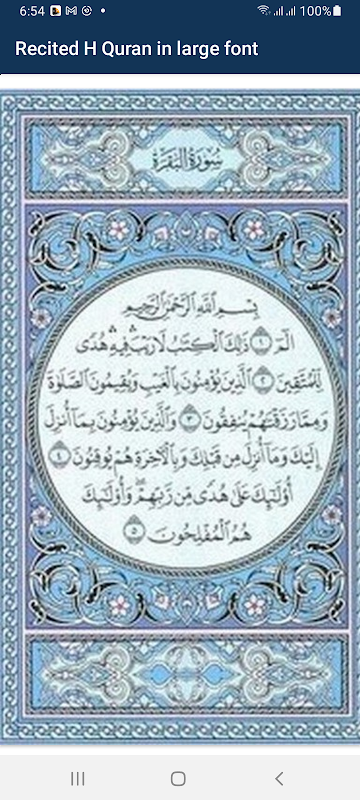 6:54
100%
Recited H Quran in large font
سُورَةُ البَقَرَةِ
بِسْمِ اللَّهِ الرَّحْمَٰنِ الرَّحِيمِ
الٓمٓ ١ ذَٰلِكَ الْكِتَٰبُ لَا رَيْبَ ۛ فِيهِ ۛ هُدًى
لِّلْمُتَّقِينَ ٢ الَّذِينَ يُؤْمِنُونَ بِالْغَيْبِ وَيُقِيمُونَ الصَّلَوٰةَ
وَمِمَّا رَزَقْنَٰهُمْ يُنفِقُونَ ٣ وَالَّذِينَ يُؤْمِنُونَ بِمَآ أُنزِلَ
إِلَيْكَ وَمَآ أُنزِلَ مِن قَبْلِكَ وَبِالْءَاخِرَةِ هُمْ يُوقِنُونَ ٤
أُو۟لَٰٓئِكَ عَلَىٰ هُدًى مِّن رَّبِّهِمْ ۖ وَأُو۟لَٰٓئِكَ
هُمُ الْمُفْلِحُونَ ٥